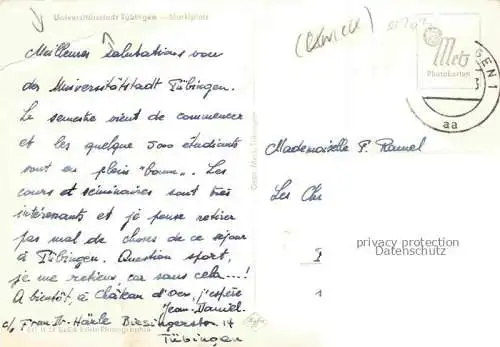 Universitätsstadt Tübingen — Marktplatz
Meilleures salutations von
der Universitätstadt Tübingen.
Le semestre vient de commencer
et les quelque 5000 étudiants
sont en plein "boum". Les
cours et séminaires sont très
intéressants et je pense retirer
pas mal de choses de ce séjour
à Tübingen. Question sport,
je me retiens, car sans cela...!
A bientôt, à Château d'Oex, j'espère
Jean-Daniel.
c/o Frau Dr. Härle Biesingerstr. 14
Tübingen
Metz
Photokarten
GEN 1
aa
Mademoiselle P. Ramel
Les Ch
privacy protection
Datenschutz